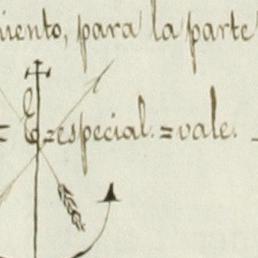 miento, para la parte
= E=especial.=vale.